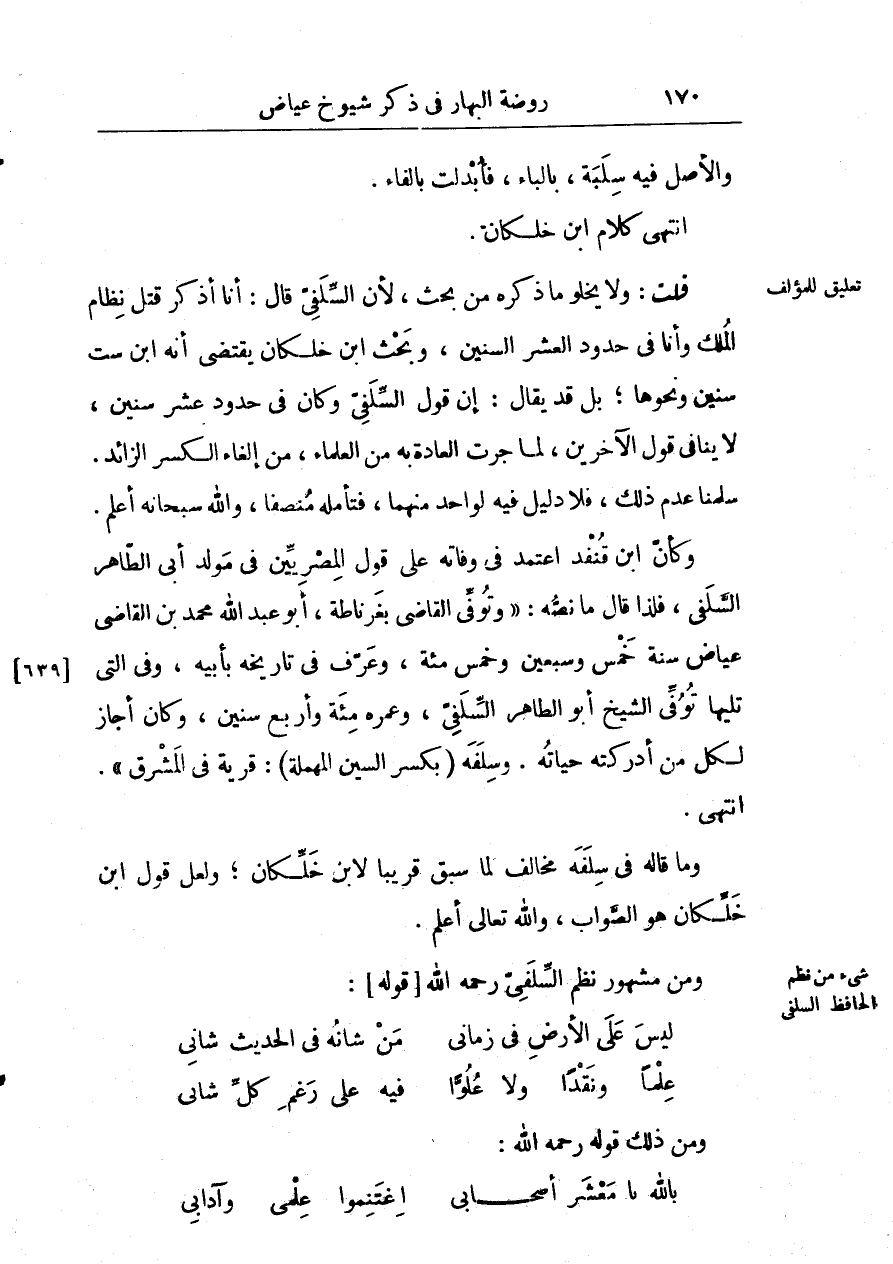 ١٧٠ روضة البهار فى ذكر شيوخ عياض
والأصل فيه سِلَبَة ، بالباء ، فأُبْدلت بالفاء .
انتهى كلام ابن خلـكان .
تعليق للمؤلف
قلت : ولا يخلو ما ذكره من بحث ، لأن السِّلَفِىّ قال : أنا أذكر قتل نِظام
المُلك وأنا فى حدود العشر السنين ، وبَحْث ابن خلـكان يقتضى أنه ابن ست
سنين ونحوها ؛ بل قد يقال : إن قول السِّلَفِىّ وكان فى حدود عشر سنين ،
لا ينافى قول الآخرين ، لمـا جرت العادة به من العلماء ، من إلغاء الـكسر الزائد .
سلمنا عدم ذلك ، فلا دليل فيه لواحد منهما ، فتأمله مُنصفا ، والله سبحانه أعلم .
وكأنّ ابن قُنْفُد اعتمد فى وفاته على قول المِصْرِيِّين فى مَولد أبى الطّاهر
السَّلَفى ، فلذا قال ما نصُّه : « وتُوفِّى القاضى بغَرناطة ، أبو عبد الله محمد بن القاضى
عياض سنة خَمْس وسبعين وخمس مئة ، وعَرّف فى تاريخه بأبيه ، وفى التى [٦٣٩]
تليها تُوُفِّى الشيخ أبو الطاهر السِّلَفِىّ ، وعمره مِئَة وأربـع سنين ، وكان أجاز
لـكل من أدركته حياتُه . وسِلَفَه ( بكسر السين المهملة ) : قرية فى المَشْرق » .
انتهى .
وما قاله فى سِلَفَه مخالف لما سبق قريبا لابن خَلِّـكان ؛ ولعل قول ابن
خَلِّـكان هو الصَّواب ، والله تعالى أعلم .
شىء من نظم
الحافظ السلفى
ومن مشهور نظم السِّلَفِىّ رحمه الله [ قوله ] :
ليسَ عَلَى الأرضِ فى زمانى مَنْ شانُه فى الحديث شانِى
عِلْمـاً ونَقْدًا ولا عُلُوًّا فيه على رَغمِ كلِّ شانى
ومن ذلك قوله رحمه الله :
بالله يا مَعْشَر أصحـابى اِغتَنِموا عِلْمى وآدابِى